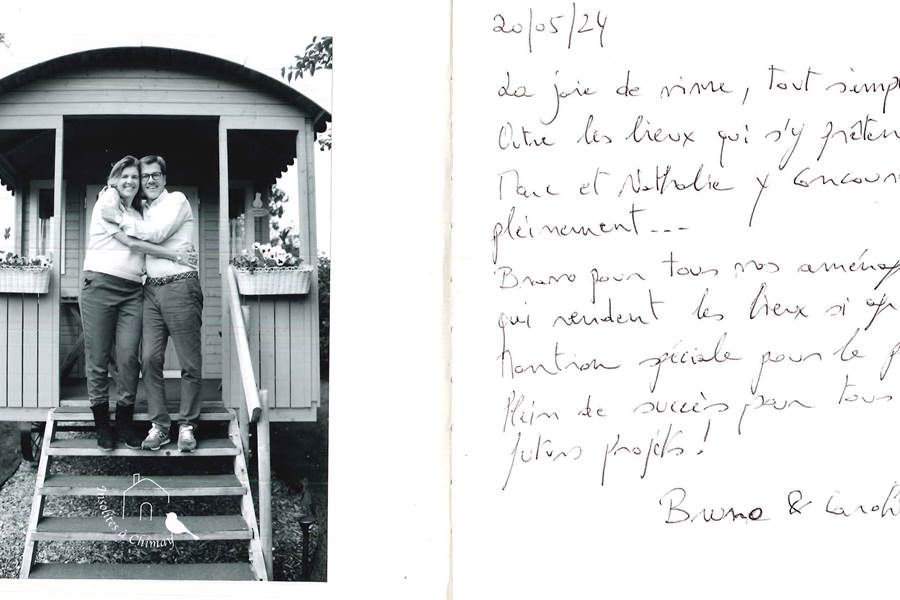 20/05/24
La joie de vivre, tout simp
Outre les lieux qui s'y prêten
Marc et Nathalie y concour
pleinement---
Bravo pour tous vos aménag
qui rendent les lieux si agr
Mention spéciale pour le p
Plein de succès pour tous
futurs projets!
Bruno & Caroli
Insolites à Chimay